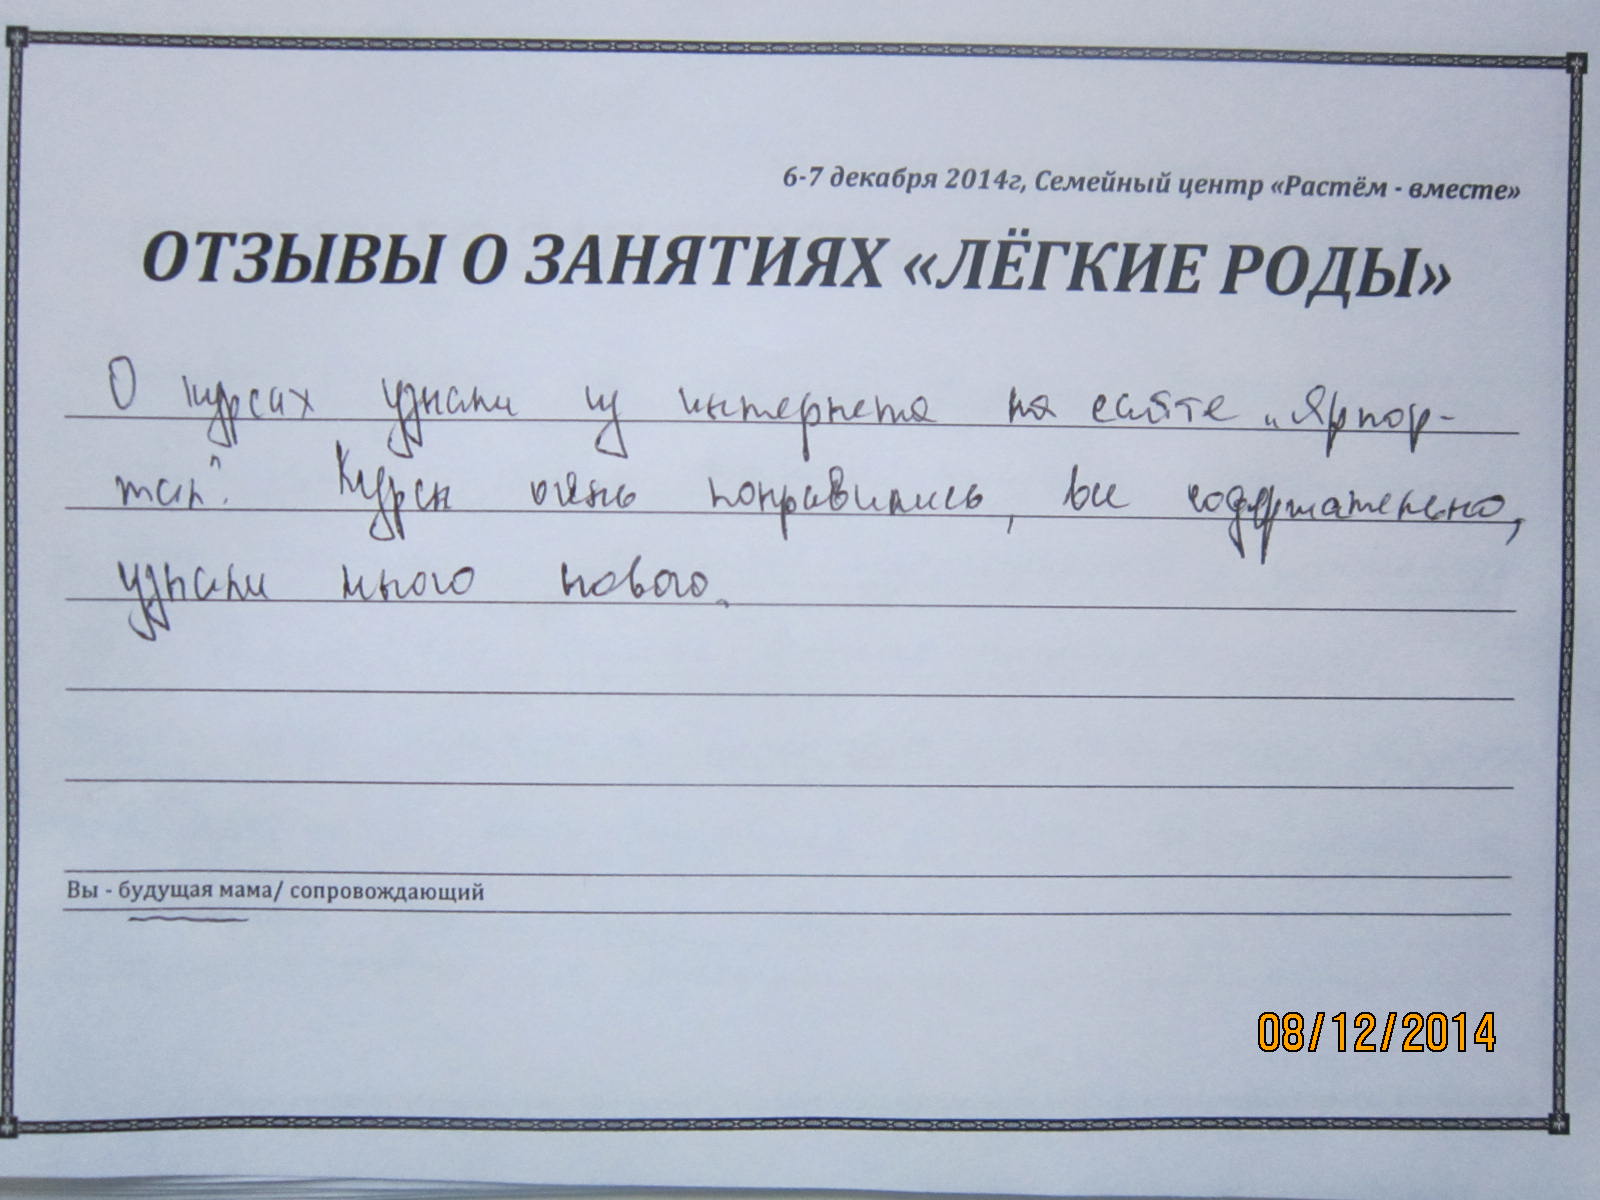 6-7 декабря 2014г, Семейный центр «Растём - вместе»
ОТЗЫВЫ О ЗАНЯТИЯХ «ЛЁГКИЕ РОДЫ»
О курсах узнали из интернета на сайте „Ярпор-
тал". Курсы очень понравились, все содержательно,
узнали много нового.
Вы - будущая мама/ сопровождающий
08/12/2014